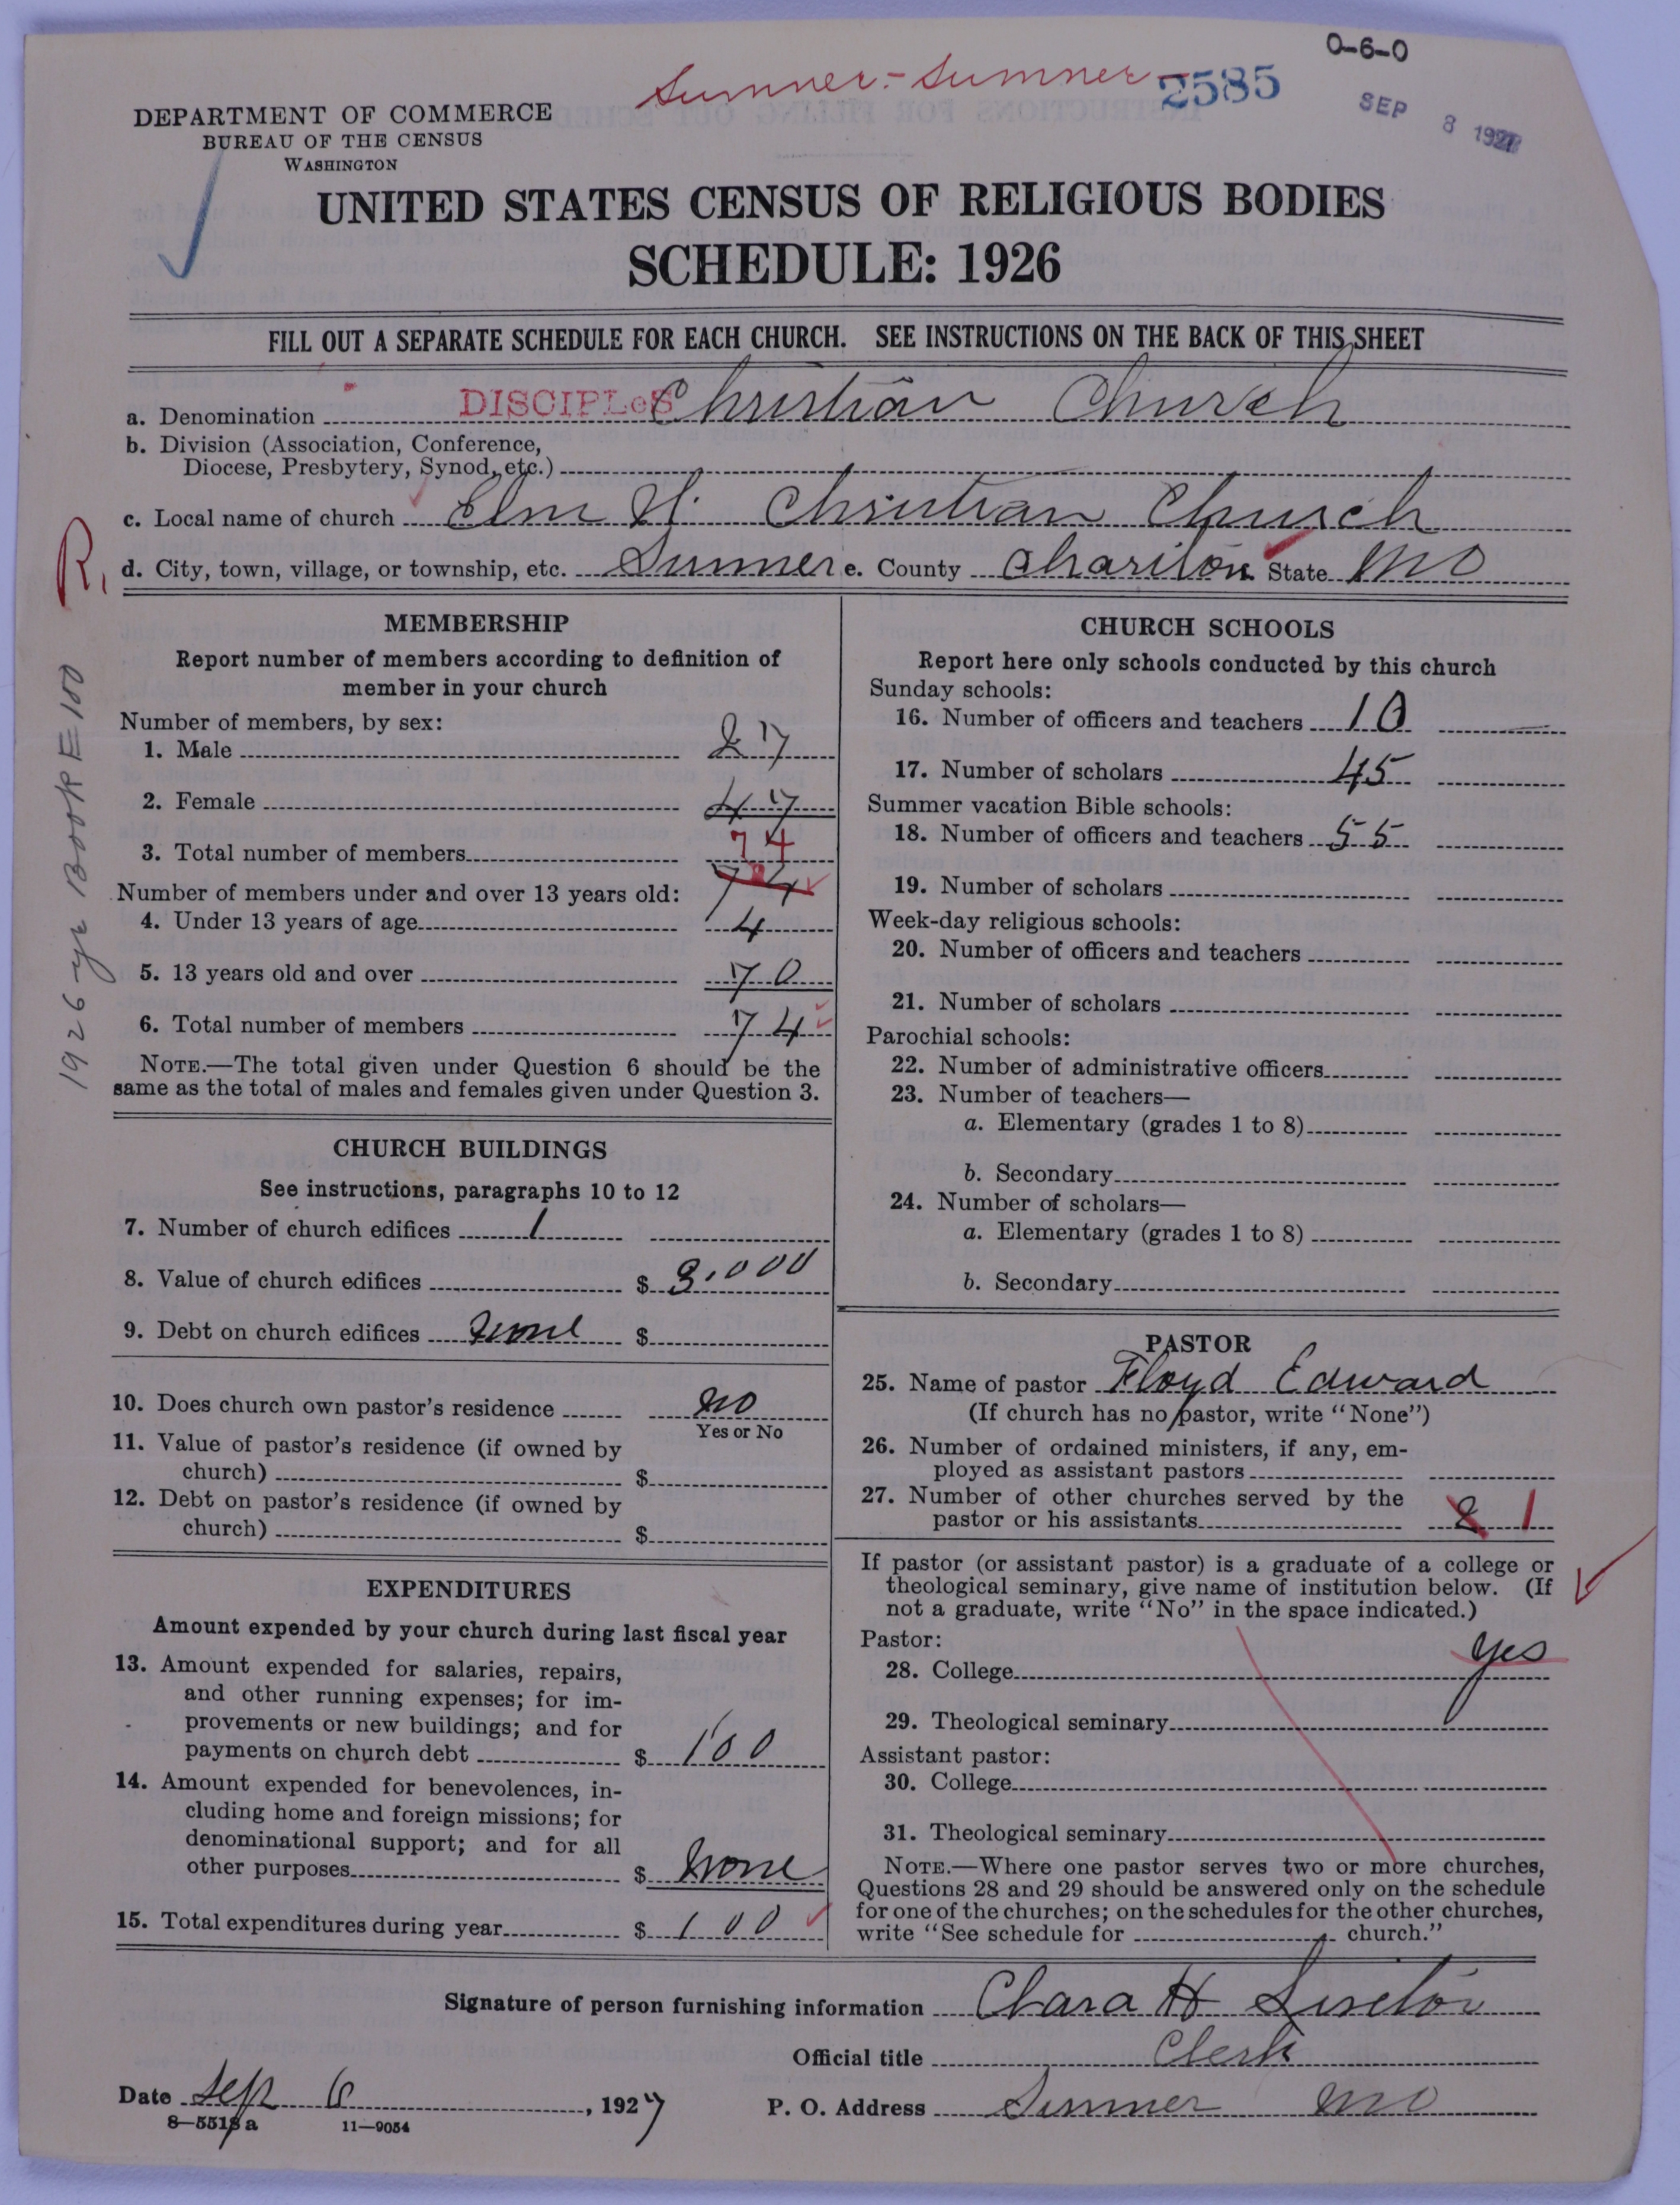 0-6-0
Sumner - Sumner 2585
SEP 8 1927
DEPARTMENT OF COMMERCE
BUREAU OF THE CENSUS
WASHINGTON
UNITED STATES CENSUS OF RELIGIOUS BODIES
SCHEDULE: 1926
FILL OUT A SEPARATE SCHEDULE FOR EACH CHURCH. SEE INSTRUCTIONS ON THE BACK OF THIS SHEET
a. Denomination DISCIPLeS Christian Church
b. Division (Association, Conference,
Diocese, Presbytery, Synod, etc.)
c. Local name of church Elm Christian Church
d. City, town, village, or township, etc. Sumner e. County Chariton State MO
R.
1926-yr Book E 100
MEMBERSHIP
Report number of members according to definition of
member in your church
Number of members, by sex:
1. Male 27
2. Female 47
3. Total number of members 74
74
Number of members under and over 13 years old:
4. Under 13 years of age 4
5. 13 years old and over 70
6. Total number of members 74
NOTE.—The total given under Question 6 should be the
same as the total of males and females given under Question 3.
CHURCH BUILDINGS
See instructions, paragraphs 10 to 12
7. Number of church edifices 1
8. Value of church edifices $ 3,000
9. Debt on church edifices None $
10. Does church own pastor's residence No
Yes or No
11. Value of pastor's residence (if owned by
church) $
12. Debt on pastor's residence (if owned by
church) $
EXPENDITURES
Amount expended by your church during last fiscal year
13. Amount expended for salaries, repairs,
and other running expenses; for im-
provements or new buildings; and for
payments on church debt $ 100
14. Amount expended for benevolences, in-
cluding home and foreign missions; for
denominational support; and for all
other purposes $ None
15. Total expenditures during year $ 100
CHURCH SCHOOLS
Report here only schools conducted by this church
Sunday schools:
16. Number of officers and teachers 10
17. Number of scholars 45
Summer vacation Bible schools:
18. Number of officers and teachers 55
19. Number of scholars
Week-day religious schools:
20. Number of officers and teachers
21. Number of scholars
Parochial schools:
22. Number of administrative officers
23. Number of teachers—
a. Elementary (grades 1 to 8)
b. Secondary
24. Number of scholars—
a. Elementary (grades 1 to 8)
b. Secondary
PASTOR
25. Name of pastor Floyd Edward
(If church has no pastor, write "None")
26. Number of ordained ministers, if any, em-
ployed as assistant pastors
27. Number of other churches served by the
pastor or his assistants 2 1
If pastor (or assistant pastor) is a graduate of a college or
theological seminary, give name of institution below. (If
not a graduate, write "No" in the space indicated.)
Pastor:
28. College yes
29. Theological seminary
Assistant pastor:
30. College
31. Theological seminary
NOTE.—Where one pastor serves two or more churches,
Questions 28 and 29 should be answered only on the schedule
for one of the churches; on the schedules for the other churches,
write "See schedule for church."
Signature of person furnishing information Clara H
Official title Clerk
Date Sep 6, 1927 P. O. Address Sumner MO
8—5518 a 11—9054